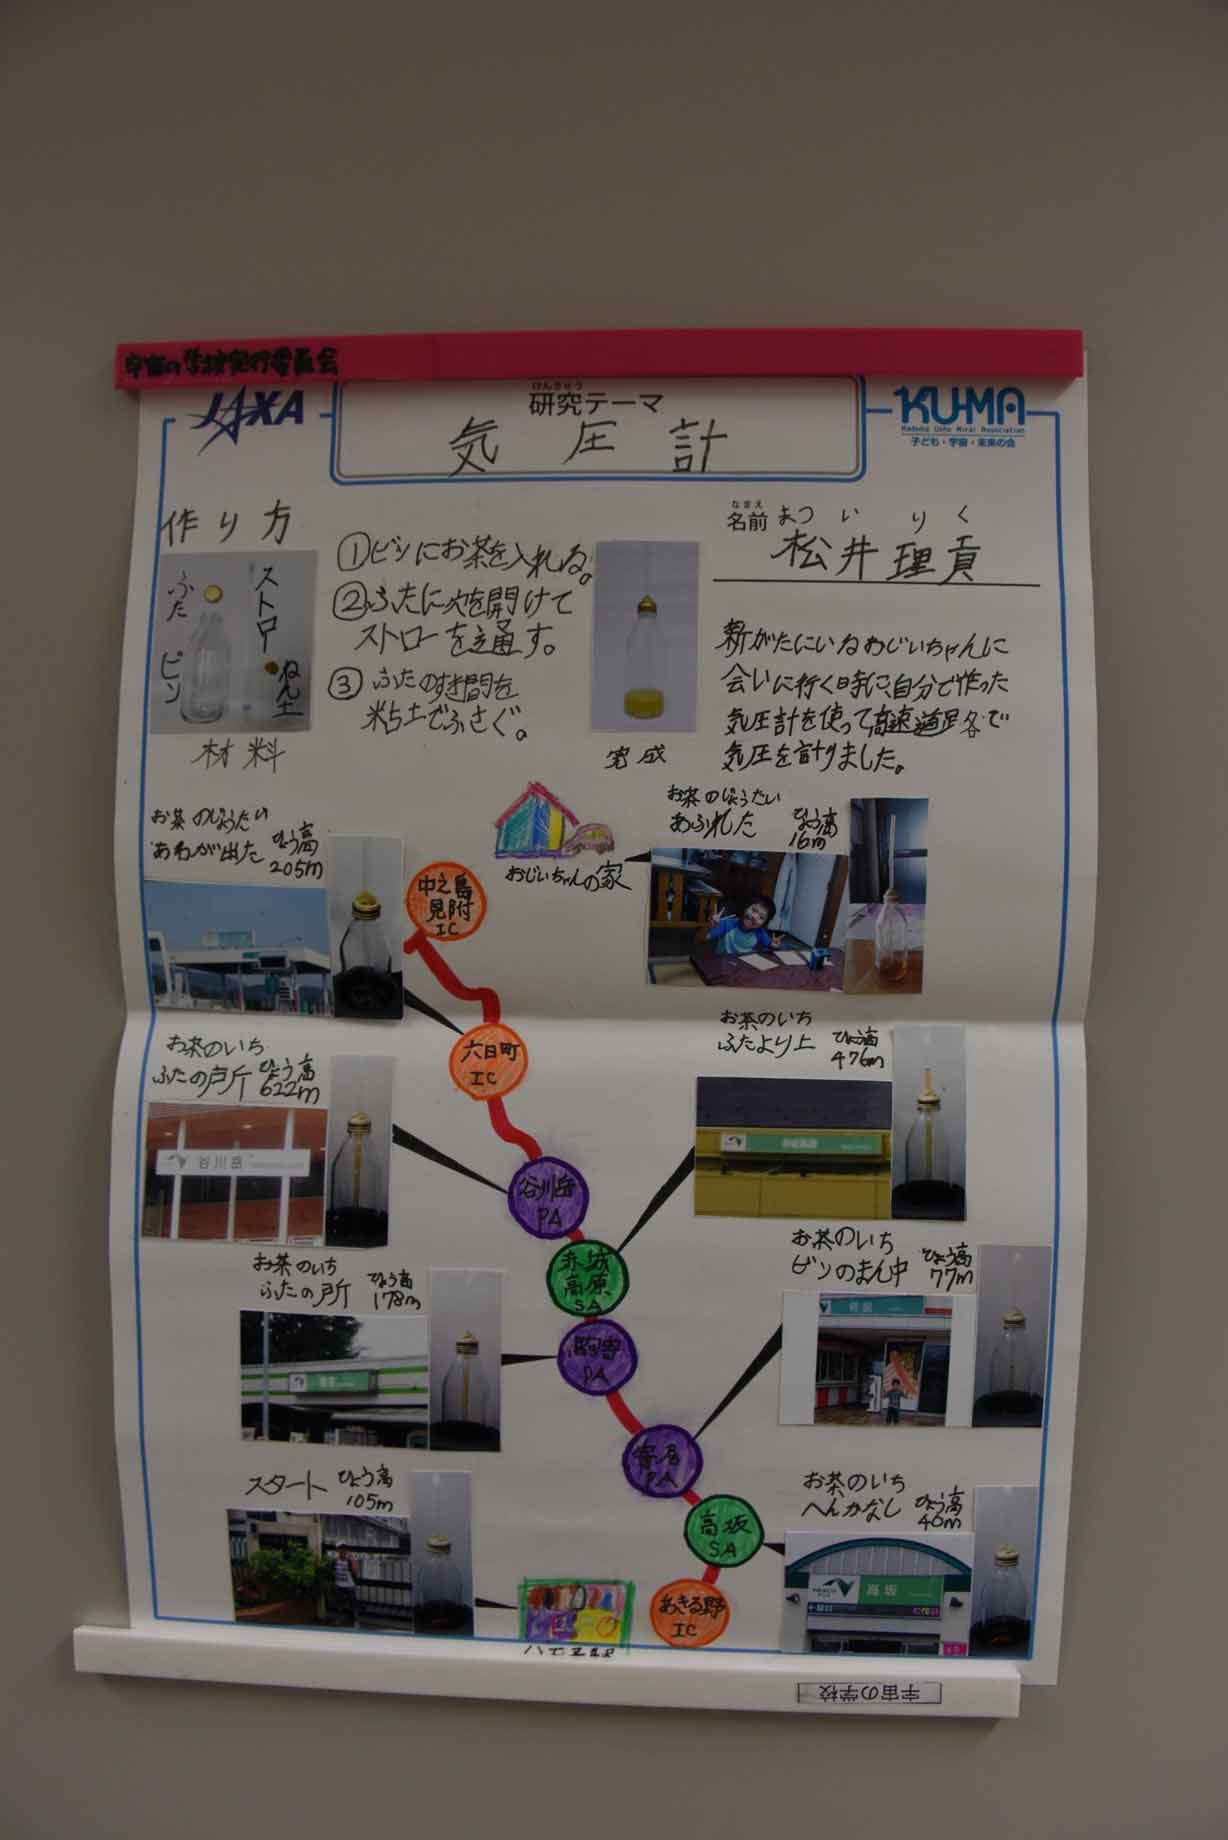 宇宙の学校実行委員会
JAXA
けんきゅう
研究テーマ
気圧計
KU-MA
Kodomo Uchu Mirai Association
子ども・宇宙・未来の会
作り方
ふた
ストロー
ビン
ねん土
材料
①ビンにお茶を入れる。
②ふたに穴を開けて
ストローを通す。
③ふたのすき間を
粘土でふさぐ。
完成
なまえ
名前
まつい りく
松井理貢
新がたにいるおじいちゃんに
会いに行く時に、自分で作った
気圧計を使って高速道路各で
気圧を計りました。
お茶のじょうたい
あわが出た
ひょう高
205m
中之島
見附
IC
おじいちゃんの家
お茶のじょうたい
あふれた
ひょう高
16m
六日町
IC
お茶のいち
ふたの所
ひょう高
622m
谷川岳
谷川岳
PA
お茶のいち
ふたより上
ひょう高
476m
赤城
高原
SA
お茶のいち
ふたの所
ひょう高
178m
駒寄
PA
お茶のいち
ビンのまん中
ひょう高
77m
寄居
PA
スタート
ひょう高
105m
高坂
SA
お茶のいち
へんかなし
ひょう高
40m
高坂
あきる野
IC
宇宙の学校